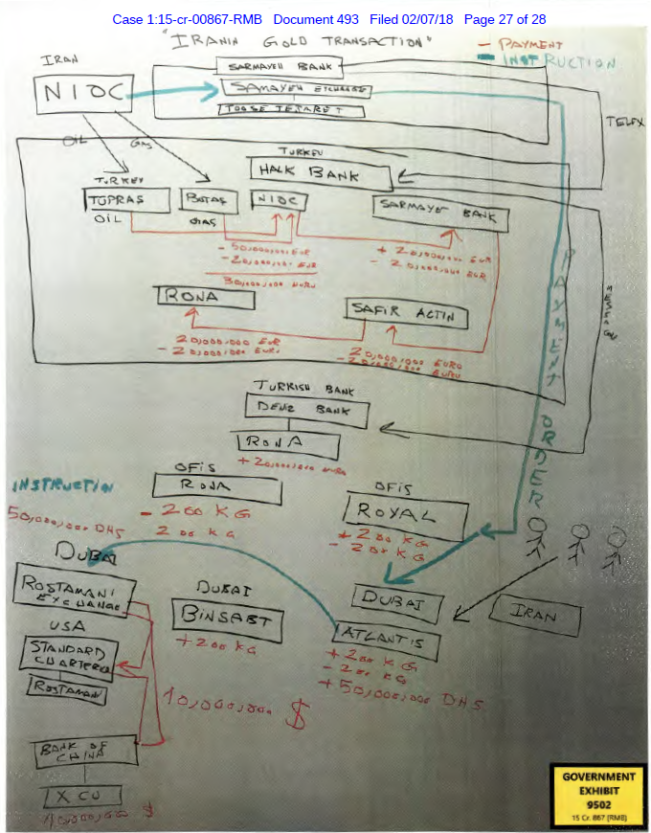 Case 1:15-cr-00867-RMB Document 493 Filed 02/07/18 Page 27 of 28
"IRANIN GOLD TRANSACTION"
- PAYMENT
- INSTRUCTION
IRAN
NIOC
SARMAYEH BANK
SAMAYEH EXCHANGE
TOSSE TEJARET
TELEX
OIL
GAS
TURKEY
HALK BANK
TURKEY
TUPRAS
OIL
BOTAS
GAS
NIOC
SARMAYEH BANK
- 50,000,000 EUR
- 20,000,000 EUR
30,000,000 EURO
+ 20,000,000 EUR
- 20,000,000 EUR
RONA
SAFIR ACTIN
20,000,000 EUR
- 20,000,000 EURO
20,000,000 EURO
- 20,000,000 EURO
MESSAGE
PAYMENT ORDER
TURKISH BANK
DENZ BANK
RONA
+ 20,000,000 EURO
OFIS
RONA
- 200 KG
200 KG
OFIS
ROYAL
+ 200 KG
- 200 KG
INSTRUCTION
50,000,000 DHS
DUBAI
ROSTAMANI
EXCHANGE
DUBAI
BINSABT
+ 200 KG
DUBAI
ATLANTIS
+ 200 KG
- 200 KG
+ 50,000,000 DHS
IRAN
USA
STANDARD
CHARTERED
ROSTAMANI
10,000,000 $
BANK OF
CHINA
X CO
10,000,000 $
GOVERNMENT
EXHIBIT
9502
15 Cr. 867 (RMB)